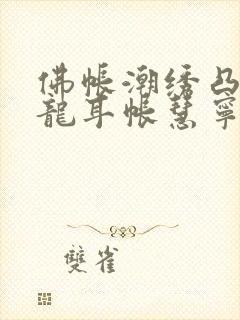 佛帐潮绣凸
龍耳帐慧寧
雙雀